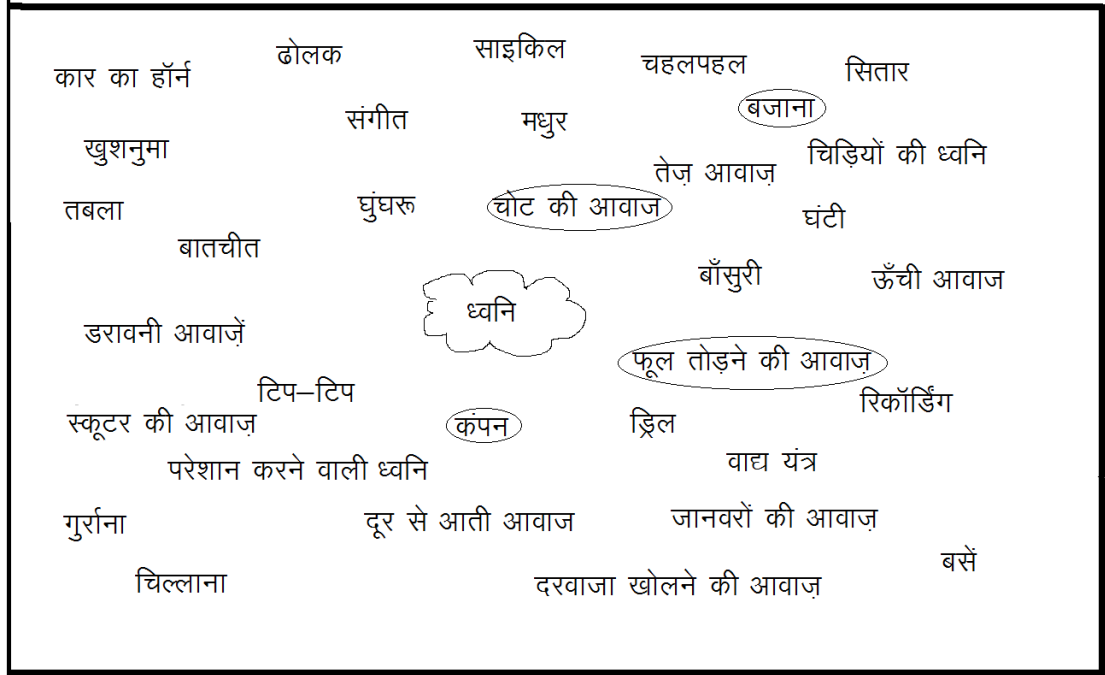 कार का हॉर्न ढोलक साइकिल चहलपहल सितार
संगीत मधुर बजाना
खुशनुमा तेज़ आवाज़ चिड़ियों की ध्वनि
तबला घुंघरू चोट की आवाज घंटी
बातचीत बाँसुरी ऊँची आवाज
ध्वनि
डरावनी आवाज़ें फूल तोड़ने की आवाज़
टिप–टिप रिकॉर्डिंग
स्कूटर की आवाज़ कंपन ड्रिल
परेशान करने वाली ध्वनि वाद्य यंत्र
गुर्राना दूर से आती आवाज जानवरों की आवाज़
बसें
चिल्लाना दरवाजा खोलने की आवाज़